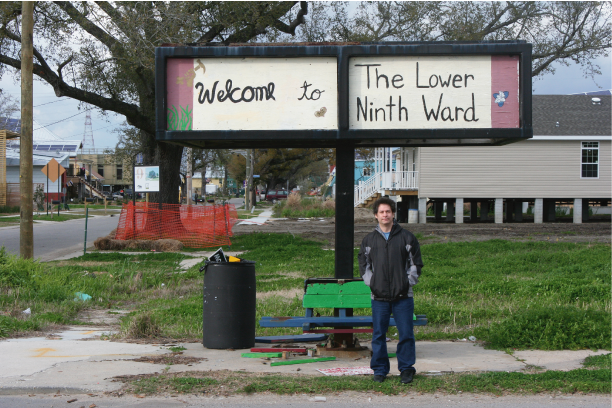 Welcome to
The Lower
Ninth Ward